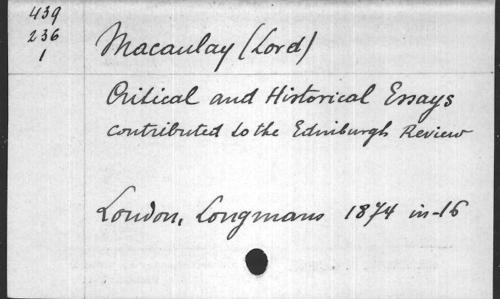 439
236
1
Macaulay (Lord)
Critical and Historical Essays
contributed to the Edinburgh Review
London, Longmans 1874 in-16